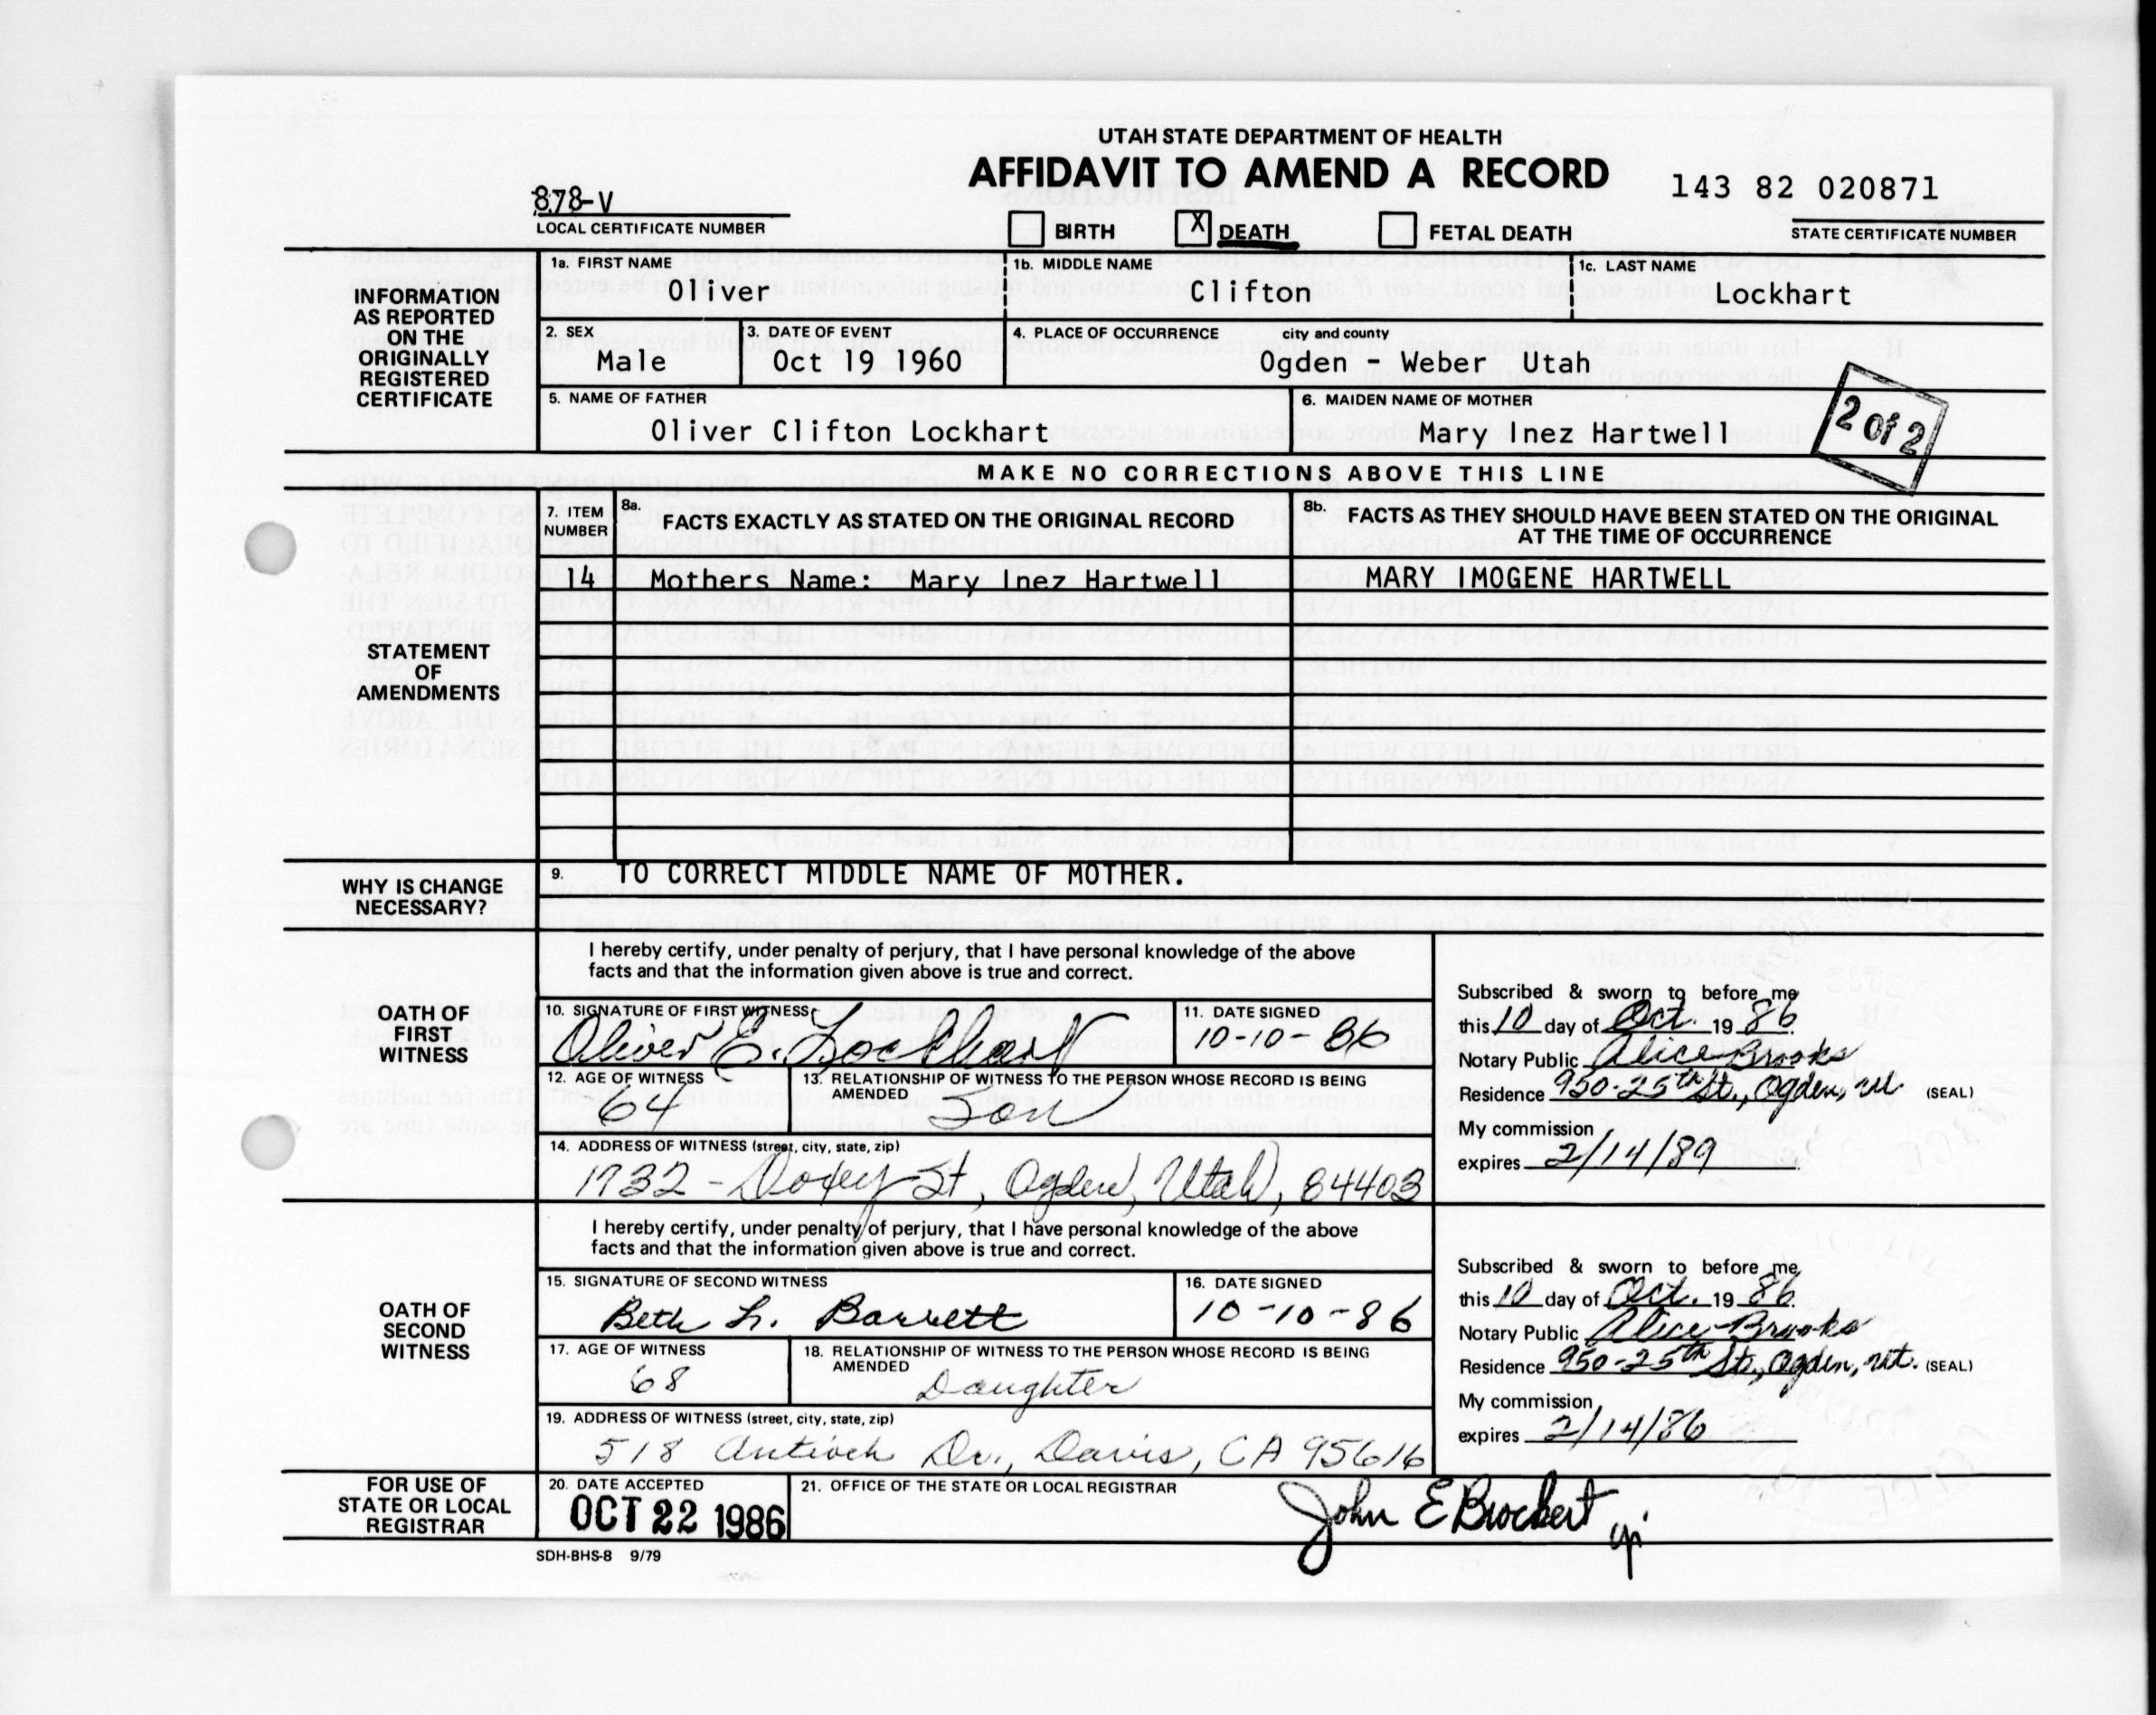 UTAH STATE DEPARTMENT OF HEALTH
AFFIDAVIT TO AMEND A RECORD
143 82 020871
STATE CERTIFICATE NUMBER
878-V
LOCAL CERTIFICATE NUMBER
BIRTH X DEATH FETAL DEATH
INFORMATION AS REPORTED ON THE ORIGINALLY REGISTERED CERTIFICATE
1a. FIRST NAME
Oliver
1b. MIDDLE NAME
Clifton
1c. LAST NAME
Lockhart
2. SEX
Male
3. DATE OF EVENT
Oct 19 1960
4. PLACE OF OCCURRENCE city and county
Ogden - Weber Utah
5. NAME OF FATHER
Oliver Clifton Lockhart
6. MAIDEN NAME OF MOTHER
Mary Inez Hartwell
2 of 2
MAKE NO CORRECTIONS ABOVE THIS LINE
STATEMENT OF AMENDMENTS
7. ITEM NUMBER
8a. FACTS EXACTLY AS STATED ON THE ORIGINAL RECORD
8b. FACTS AS THEY SHOULD HAVE BEEN STATED ON THE ORIGINAL
AT THE TIME OF OCCURRENCE
14 Mothers Name: Mary Inez Hartwell MARY IMOGENE HARTWELL
WHY IS CHANGE NECESSARY?
9. TO CORRECT MIDDLE NAME OF MOTHER.
OATH OF FIRST WITNESS
I hereby certify, under penalty of perjury, that I have personal knowledge of the above
facts and that the information given above is true and correct.
10. SIGNATURE OF FIRST WITNESS
Oliver E. Lockhart
11. DATE SIGNED
10-10-86
12. AGE OF WITNESS
64
13. RELATIONSHIP OF WITNESS TO THE PERSON WHOSE RECORD IS BEING
AMENDED
Son
14. ADDRESS OF WITNESS (street, city, state, zip)
1732 - Doxey St, Ogden, Utah, 84403
Subscribed & sworn to before me
this 10 day of Oct. 19 86
Notary Public Alice Brooks
Residence 950-25th St., Ogden, ut. (SEAL)
My commission
expires 2/14/89
OATH OF SECOND WITNESS
I hereby certify, under penalty of perjury, that I have personal knowledge of the above
facts and that the information given above is true and correct.
15. SIGNATURE OF SECOND WITNESS
Beth L. Barrett
16. DATE SIGNED
10-10-86
17. AGE OF WITNESS
68
18. RELATIONSHIP OF WITNESS TO THE PERSON WHOSE RECORD IS BEING
AMENDED
Daughter
19. ADDRESS OF WITNESS (street, city, state, zip)
518 Antioch Dr., Davis, CA 95616
Subscribed & sworn to before me
this 10 day of Oct. 19 86.
Notary Public Alice Brooks
Residence 950-25th St., Ogden, ut. (SEAL)
My commission
expires 2/14/86
FOR USE OF STATE OR LOCAL REGISTRAR
20. DATE ACCEPTED
OCT 22 1986
21. OFFICE OF THE STATE OR LOCAL REGISTRAR
John E Brockert
SDH-BHS-8 9/79